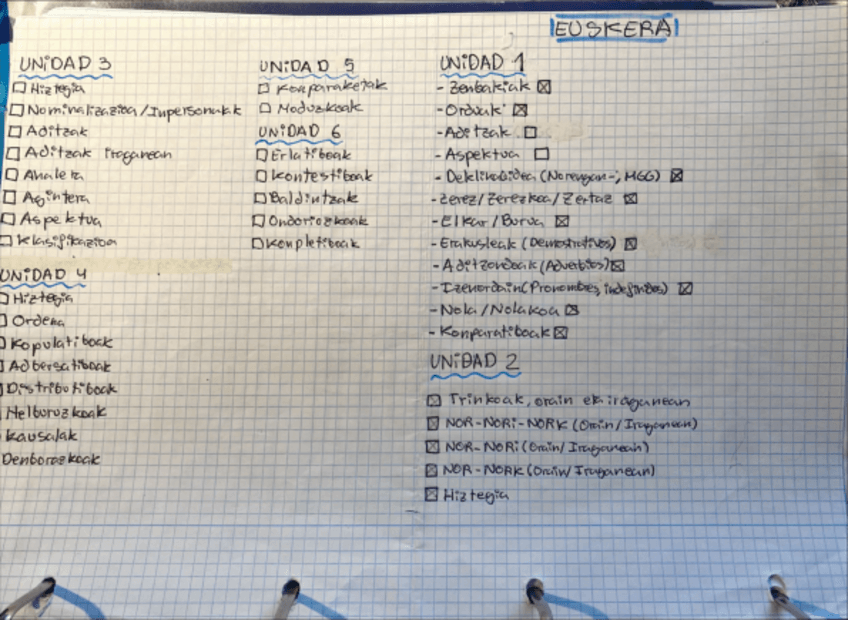 EUSKERA
UNIDAD 3
Hiztegia
Nominalizazioa/Inpersonalak
Aditzak
Aditzak iraganean
Ahalera
Agintera
Aspektua
Klasifikazioa
UNIDAD 4
Hiztegia
Ordena
Kopulatiboak
Adbersatiboak
Distributiboak
Helburuzkoak
Kausalak
Denborazkoak
UNIDAD 5
Konparaketak
Moduzkoak
UNIDAD 6
Erlatiboak
Kontestiboak
Baldintzak
Ondoriozkoak
Konpletiboak
UNIDAD 1
- Zenbakiak
- Orduak
- Aditzak
- Aspektua
- Deklinabidea (Norengan-, MGG)
- Zerez/Zerezkoa/Zertaz
- Elkar/Burua
- Erakusleak (Demostrativos)
- Aditzondoak (Adverbios)
- Izenordain (Pronombres, indefinidos)
- Nola/Nolakoa
- Konparatiboak
UNIDAD 2
Trinkoak, orain eta iraganean
NOR-NORI-NORK (Orain/Iraganean)
NOR-NORI (Orain/Iraganean)
NOR-NORK (Orain/Iraganean)
Hiztegia